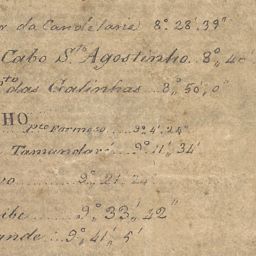 da Candelaria 8°. 28'. 39"
Cabo S.to Agostinho.. 8°,
das Galinhas... 8°, 50', 0"
HO
pto Formoso.... 9°. 4'. 24"
Tamandaré.... 9°. 11', 34'
9°. 21'. 24'
9°. 33', 42"
9°. 41'. 5'